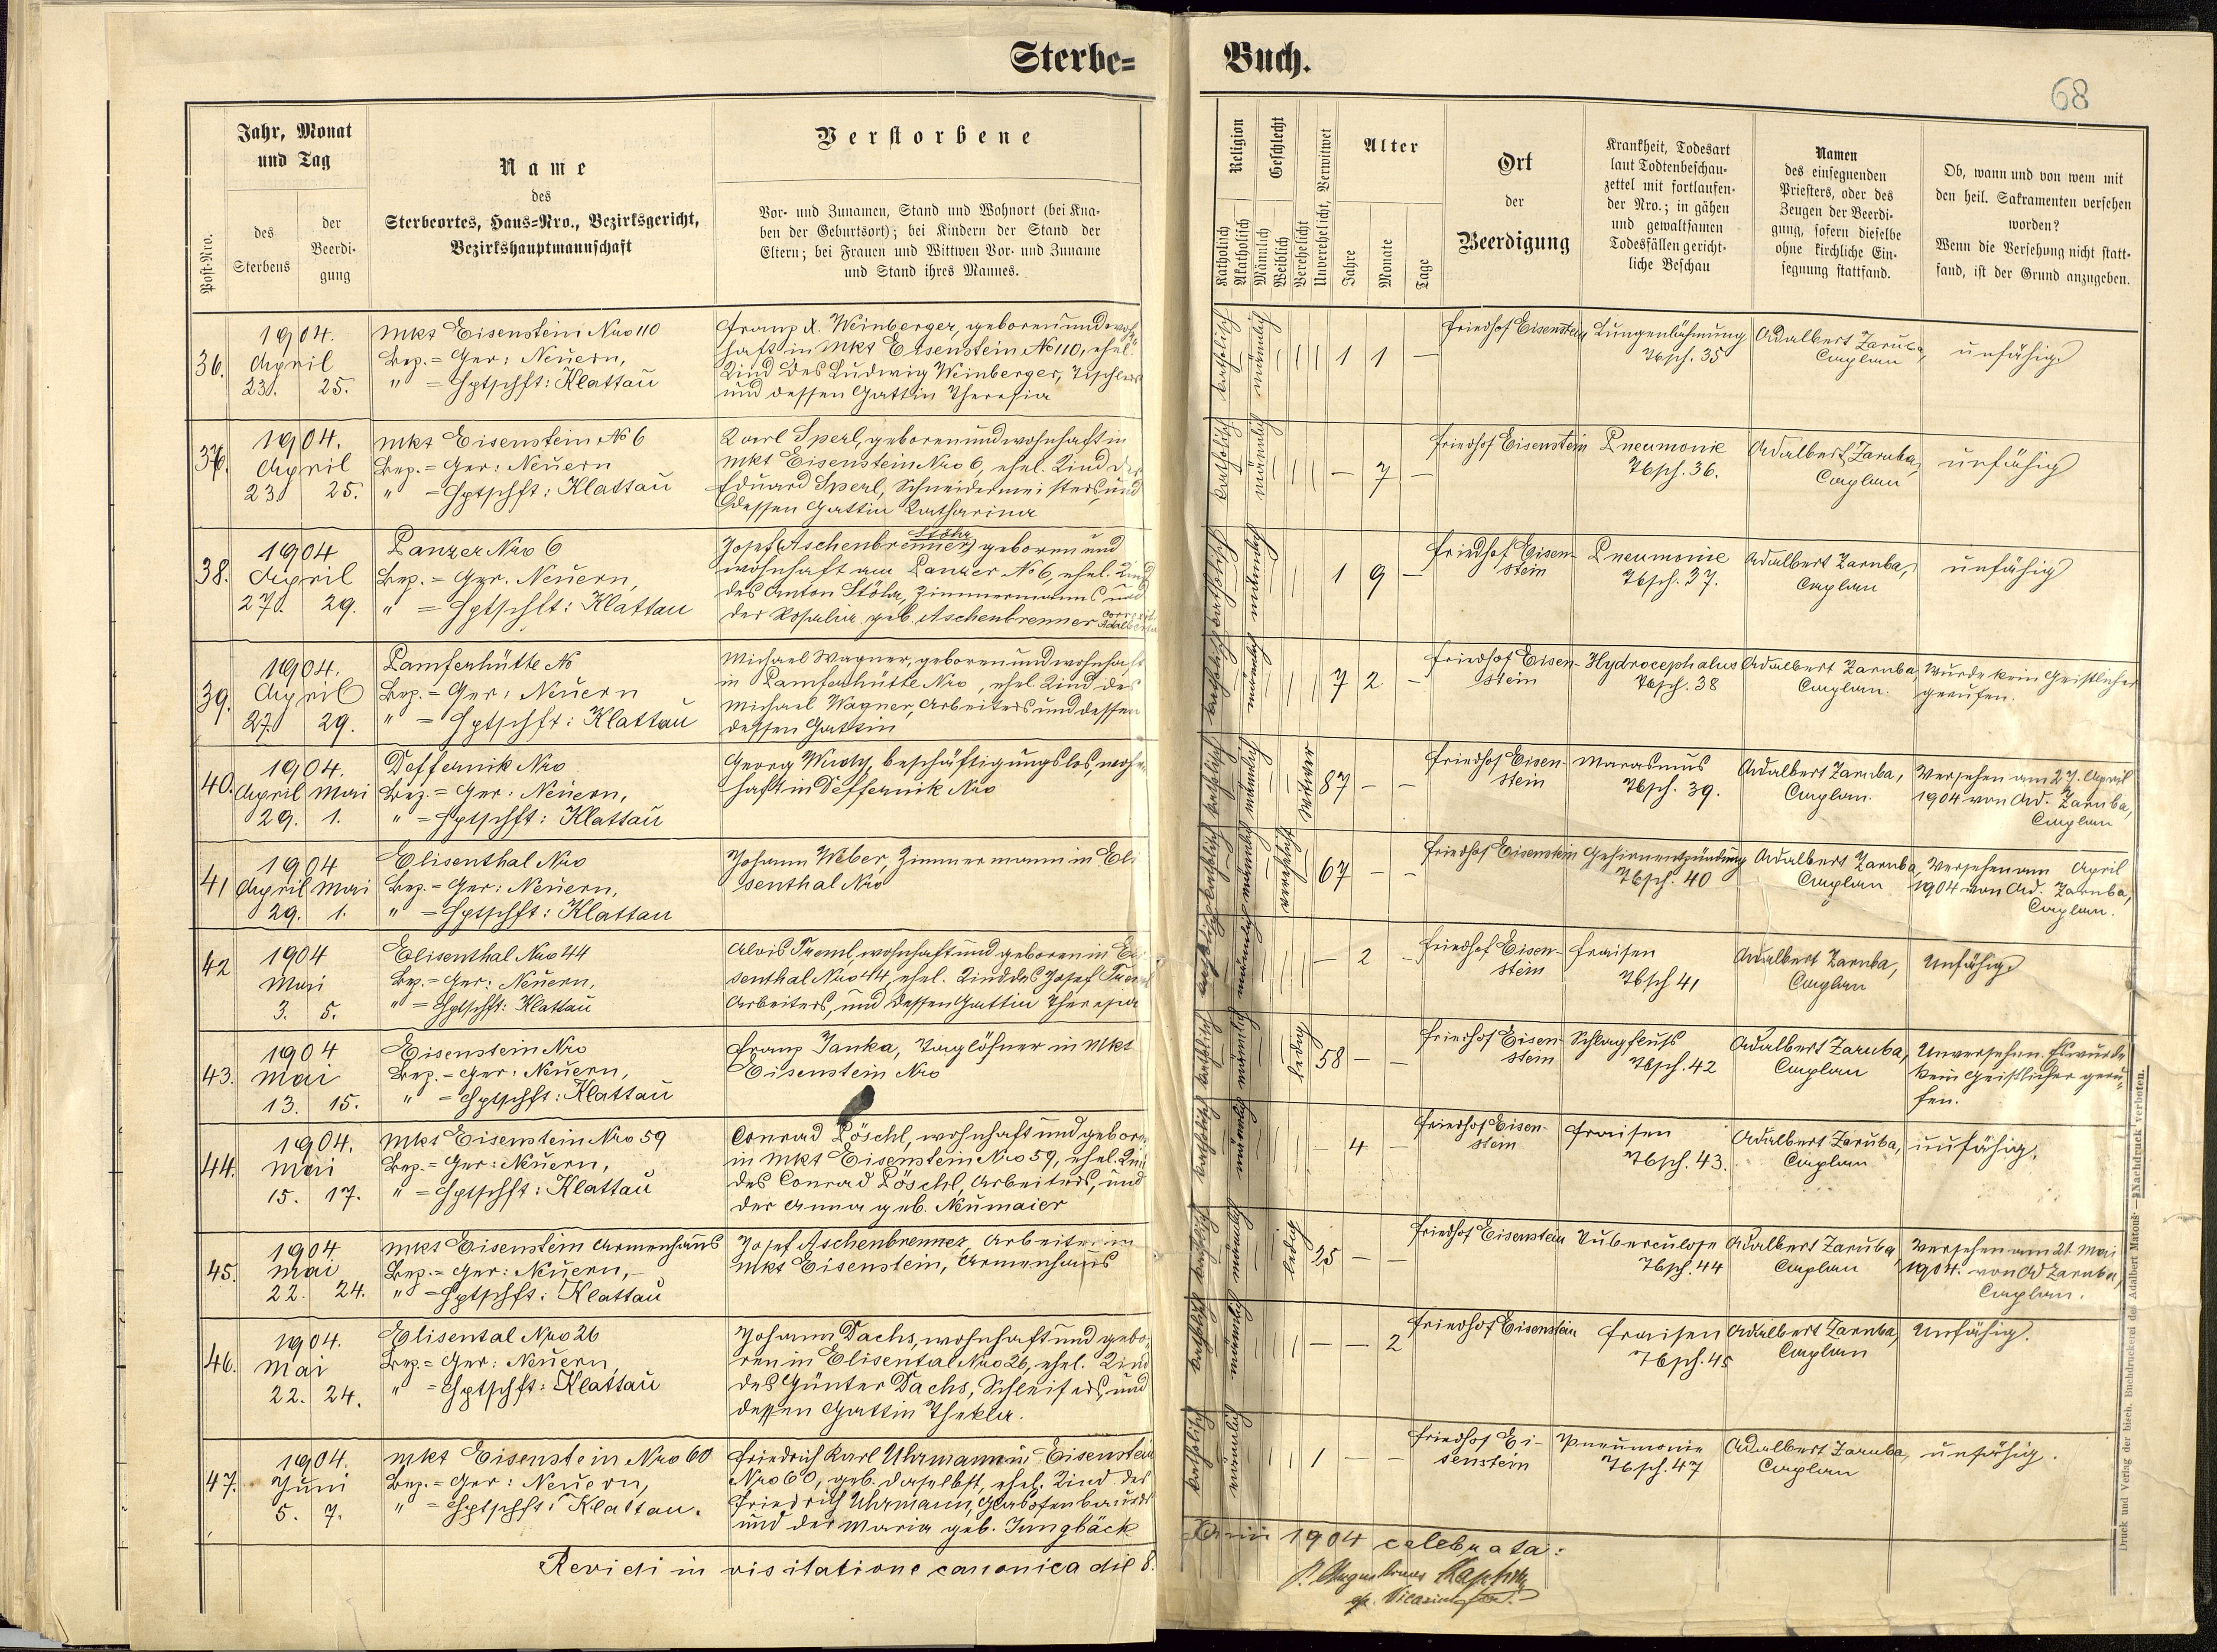 Sterbe=
Buch.
68
Jahr, Monat
und Tag
Post-Nro.
des
Sterbens
der
Beerdi-
gung
Name
des
Sterbeortes, Haus=Nro., Bezirksgericht,
Bezirkshauptmannschaft
Verstorbene
Vor- und Zunamen, Stand und Wohnort (bei Kna-
ben der Geburtsort); bei Kindern der Stand der
Eltern; bei Frauen und Wittwen Vor- und Zuname
und Stand ihres Mannes.
Religion
Katholisch
Akatholisch
Geschlecht
Männlich
Weiblich
Verehelicht
Unverehelicht, Verwitwet
Alter
Jahre
Monate
Tage
Ort
der
Beerdigung
Krankheit, Todesart
laut Todtenbeschau-
zettel mit fortlaufen-
der Nro.; in gähen
und gewaltsamen
Todesfällen gericht-
liche Beschau
Namen
des einsegnenden
Priesters, oder des
Zeugen der Beerdi-
gung, sofern dieselbe
ohne kirchliche Ein-
segnung stattfand.
Ob, wann und von wem mit
den heil. Sakramenten versehen
worden?
Wenn die Versehung nicht statt-
fand, ist der Grund anzugeben.
36.
1904.
April
23. 25.
Mkt Eisenstein Nro 110
Bez.=Ger: Neuern,
" =Hptschft: Klattau
Franz X. Weinberger, geboren und wohn-
haft in Mkt Eisenstein No 110, ehel.
Kind des Ludwig Weinberger, Tischlers
und dessen Gattin Theresia
katholisch
männlich
1 1 —
Friedhof Eisenstein
Lungenlähmung
Tbsch. 35
Adalbert Zaruba,
Caplan
unfähig
37.
1904.
April
23. 25.
Mkt Eisenstein No 6
Bez.=Ger: Neuern
" =Hptschft: Klattau
Karl Sperl, geboren und wohnhaft in
Mkt Eisenstein Nro 6, ehel. Kind des
Eduard Sperl, Schneidermeisters, und
dessen Gattin Katharina
katholisch
männlich
— 7 —
Friedhof Eisenstein
Pneumonie
Tbsch. 36.
Adalbert Zaruba,
Caplan
unfähig
38.
1904
April
27. 29.
Panzer Nro 6
Bez.=Ger. Neuern,
" =Hptschft: Klattau
Stöhr
Josef Aschenbrenner, geboren und
wohnhaft am Panzer No 6, ehel. Kind
des Anton Stöhr, Zimmermanns und
der Rosalia geb. Aschenbrenner
katholisch
männlich
1 9 —
Friedhof Eisen-
stein
Pneumonie
Tbsch. 37.
Adalbert Zaruba,
Caplan
unfähig
39.
1904.
April
27. 29.
Pamferhütte No
Bez.=Ger: Neuern
" =Hptschft: Klattau
Michael Wagner, geboren und wohnhaft
in Pamferhütte Nro , ehel. Kind des
Michael Wagner, Arbeiters und dessen
dessen Gattin
katholisch
männlich
7 2 —
Friedhof Eisen-
stein
Hydrocephalus
Tbsch. 38
Adalbert Zaruba,
Caplan.
Wurde kein Geistlicher
gerufen.
40.
1904.
April Mai
29. 1.
Deffernik Nro
Bez.=Ger: Neuern,
" =Hptschft: Klattau
Georg Wudy, beschäftigungslos, wohn-
haft in Deffernik Nro
katholisch
männlich
Witwer
87 — —
Friedhof Eisen-
stein
Marasmus
Tbsch. 39.
Adalbert Zaruba,
Caplan.
Versehen am 27. April
1904 von Ad. Zaruba,
Caplan
41
1904
April Mai
29. 1.
Elisenthal Nro
Bez.=Ger: Neuern,
" =Hptschft: Klattau
Johann Weber, Zimmermann in Eli
senthal Nro
katholisch
männlich
verehelicht
67 — —
Friedhof Eisenstein
Gehirnentzündung
Tbsch. 40
Adalbert Zaruba,
Caplan
Versehen am April
1904 von Ad. Zaruba,
Caplan.
42
1904
Mai
3. 5.
Elisenthal Nro 44
Bez.=Ger: Neuern,
" =Hptschft: Klattau
Alois Treml, wohnhaft und geboren in Eli
senthal Nro 44, ehel. Kind des Josef Treml
Arbeiters, und dessen Gattin Theresia
katholisch
männlich
— 2 -
Friedhof Eisen-
stein
Fraisen
Tbsch 41
Adalbert Zaruba,
Caplan
Unfähig
43.
1904
Mai
13. 15.
Eisenstein Nro
Bez.=Ger: Neuern,
" =Hptschft: Klattau
Franz Janka, Taglöhner in Mkt
Eisenstein Nro
katholisch
männlich
ledig
58 — —
Friedhof Eisen-
stein
Schlagfluß
Tbsch. 42
Adalbert Zaruba,
Caplan
Unversehen. Es wurde
kein Geistlicher geru-
fen.
44.
1904.
Mai
15. 17.
Mkt Eisenstein Nro 59
Bez.=Ger: Neuern,
" =Hptschft: Klattau
Conrad Pöschl, wohnhaft und geboren
in Mkt Eisenstein Nro 59, ehel. Kind
des Conrad Pöschl, Arbeiters, und
der Anna geb. Neumaier
katholisch
männlich
— 4 —
Friedhof Eisen-
stein
Fraisen
Tbsch. 43.
Adalbert Zaruba,
Caplan
unfähig.
45.
1904
Mai
22. 24.
Mkt Eisenstein Armenhaus
Bez.=Ger: Neuern,
" =Hptschft: Klattau
Josef Aschenbrenner, Arbeiter in
Mkt Eisenstein, Armenhaus
katholisch
männlich
ledig
25 — —
Friedhof Eisenstein
Tuberculose
Tbsch. 44
Adalbert Zaruba
Caplan
Versehen am 21. Mai
1904. von Ad Zaruba,
Caplan.
46.
1904.
Mai
22. 24.
Elisental Nro 26
Bez.=Ger: Neuern
" =Hptschft: Klattau
Johann Dachs, wohnhaft und gebo-
ren in Elisental Nro 26, ehel. Kind
des Günter Dachs, Schleifers, und
dessen Gattin Thekla.
katholisch
männlich
— — 2
Friedhof Eisenstein
Fraisen
Tbsch. 45
Adalbert Zaruba,
Caplan
Unfähig.
47.
1904.
Juni
5. 7.
Mkt Eisenstein Nro 60
Bez.=Ger: Neuern,
" =Hptschft: Klattau.
Friedrich Karl Uhrmann in Eisenstein
Nro 60, geb. daselbst, ehel. Kind des
Friedrich Uhrmann, Glasofenbauers
und der Maria geb. Jungbäck
katholisch
männlich
1 — —
Friedhof Ei-
senstein
Pneumonie
Tbsch. 47
Adalbert Zaruba,
Caplan
unfähig.
Revidi in visitatione canonica die 8.
Junii 1904 celebrata:
Druck und Verlag der bisch. Buchdruckerei des Adalbert Matouš — Nachdruck verboten.